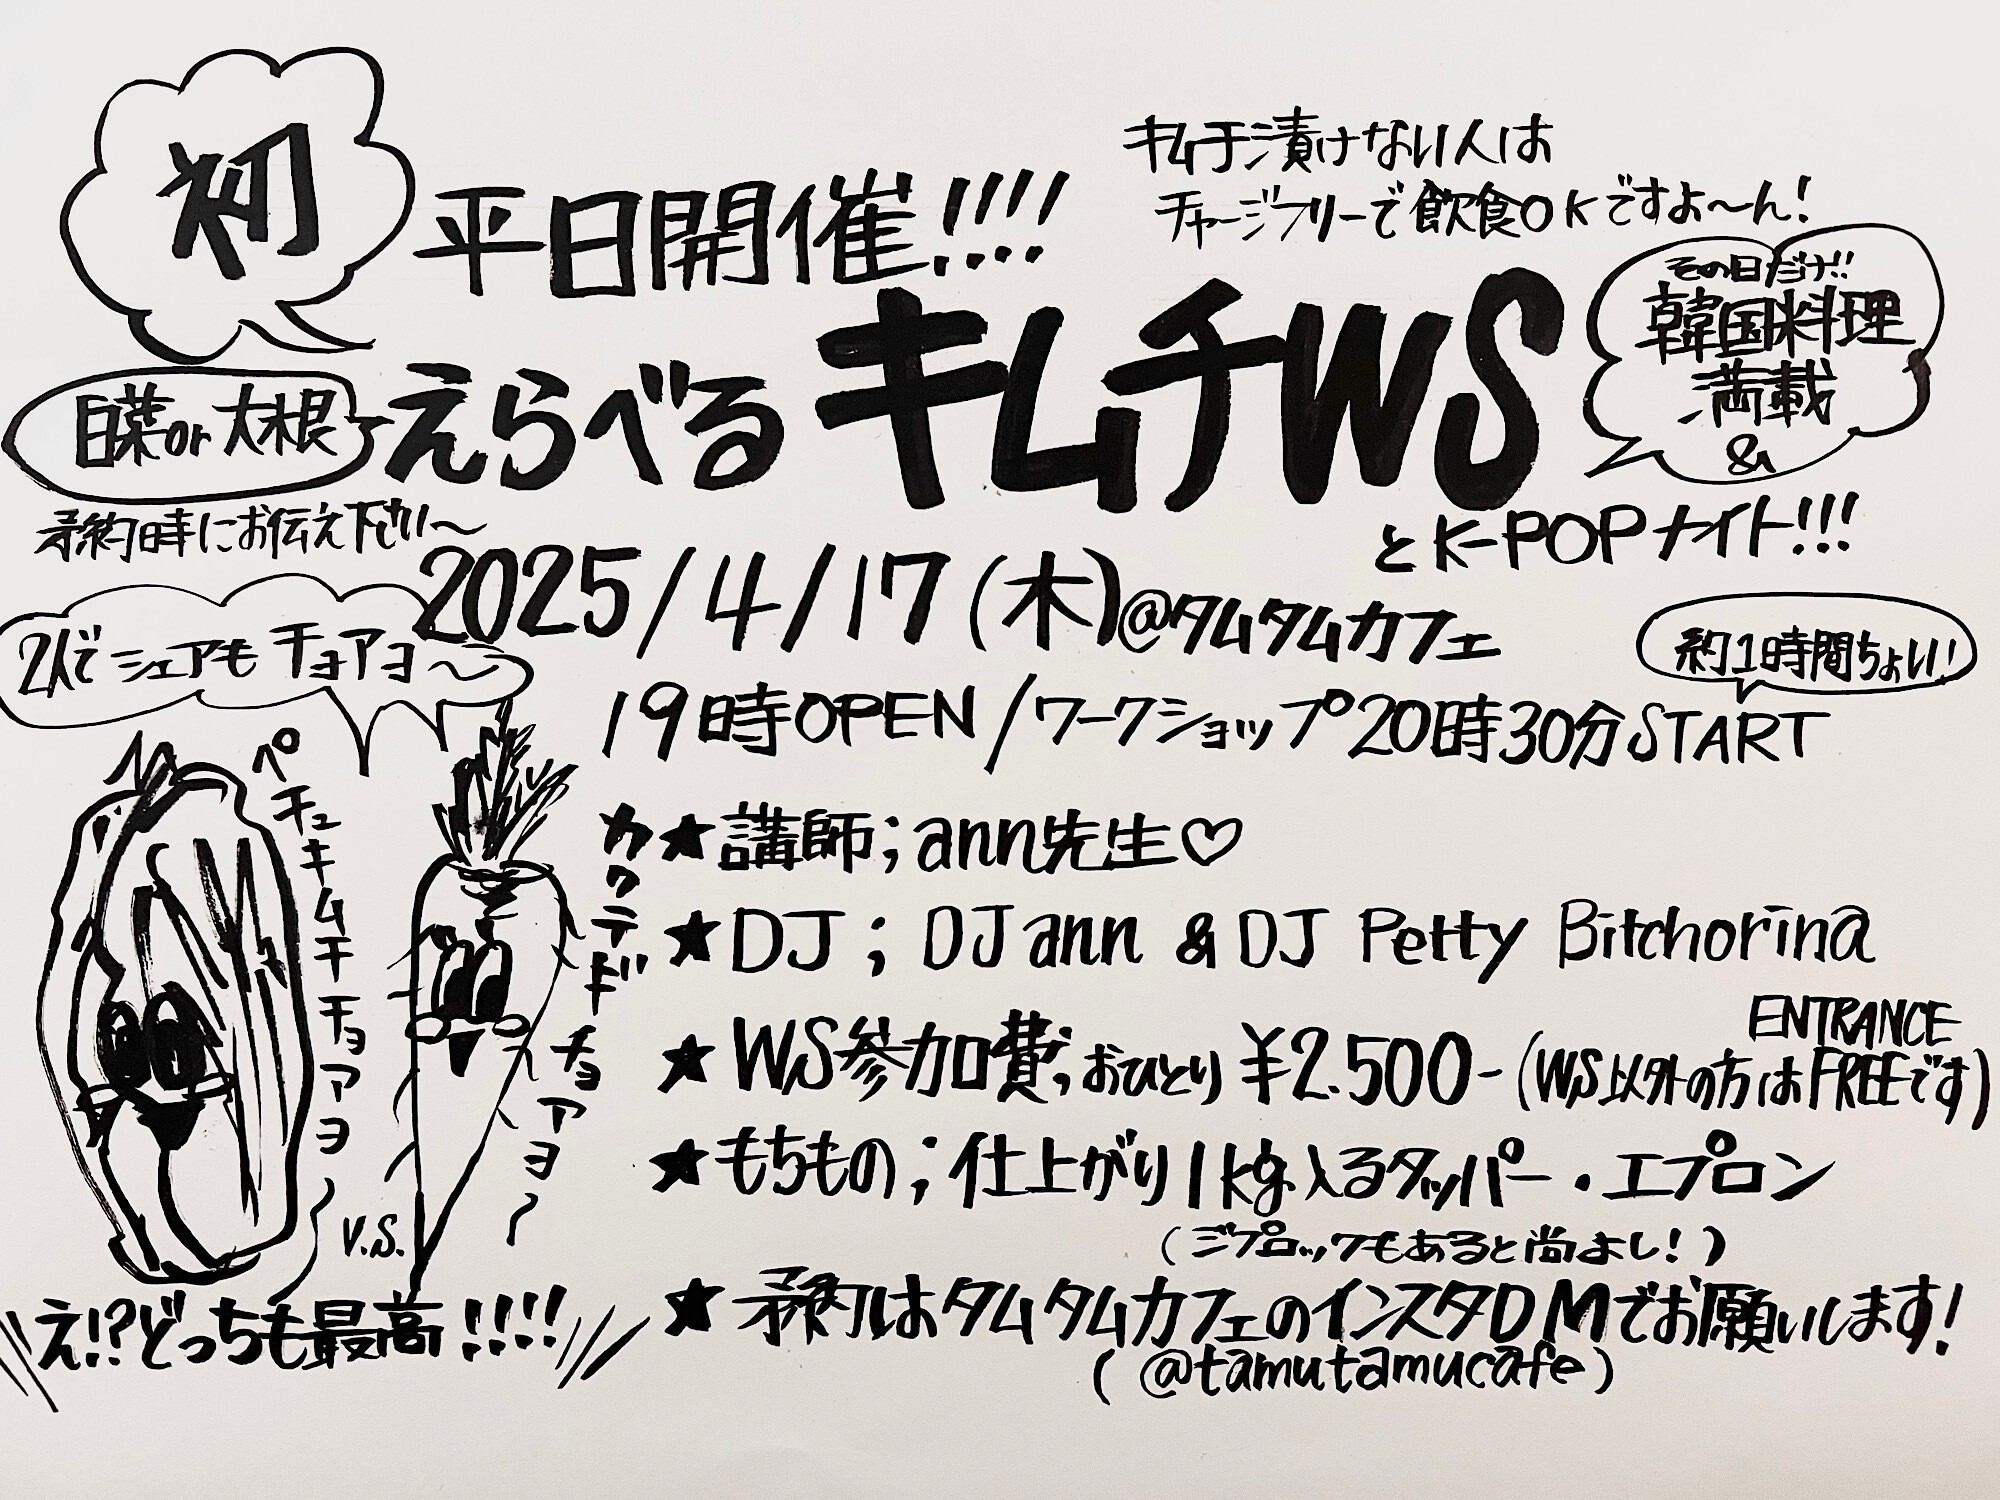 初
平日開催!!!!
キムチ漬けない人は
チャージフリーで飲食OKですよ〜ん!
白菜or大根
えらべる
キムチWS
その日だけ!!
韓国料理
満載
&
予約時にお伝え下さい〜
とK-POPナイト!!!
2025/4/17(木)@タムタムカフェ
2人でシェアもチョアヨ〜
約1時間ちょい!
19時OPEN/ワークショップ20時30分START
ペチュキムチチョアヨ〜
カクテギチョアヨ〜
V.S.
え!?どっちも最高!!!!
★講師;ann先生♡
★DJ;DJ ann & DJ Petty Bitchorina
ENTRANCE
★WS参加費;おひとり¥2.500-(WS以外の方はFREEです)
★もちもの;仕上がり1kg入るタッパー・エプロン
(ジプロックもあると尚よし!)
★予約はタムタムカフェのインスタDMでお願いします!
(@tamutamucafe)